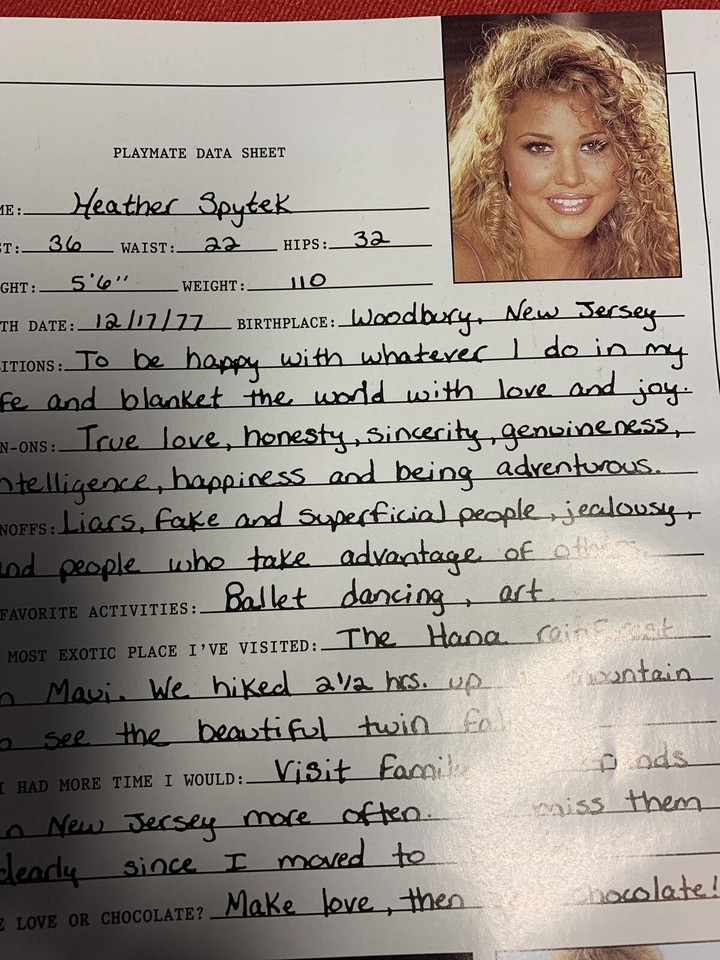 PLAYMATE DATA SHEET
ME: Heather Spytek
ST: 36 WAIST: 22 HIPS: 32
GHT: 5'6" WEIGHT: 110
TH DATE: 12/17/77 BIRTHPLACE: Woodbury, New Jersey
ITIONS: To be happy with whatever I do in my
fe and blanket the world with love and joy.
N-ONS: True love, honesty, sincerity, genuineness,
ntelligence, happiness and being adventurous.
NOFFS: Liars, fake and superficial people, jealousy,
nd people who take advantage of others.
FAVORITE ACTIVITIES: Ballet dancing, art.
MOST EXOTIC PLACE I'VE VISITED: The Hana rainforest
n Maui. We hiked 2 1/2 hrs. up mountain
o see the beautiful twin fal
I HAD MORE TIME I WOULD: Visit family nds
n New Jersey more often. miss them
dearly since I moved to
E LOVE OR CHOCOLATE? Make love, then chocolate!